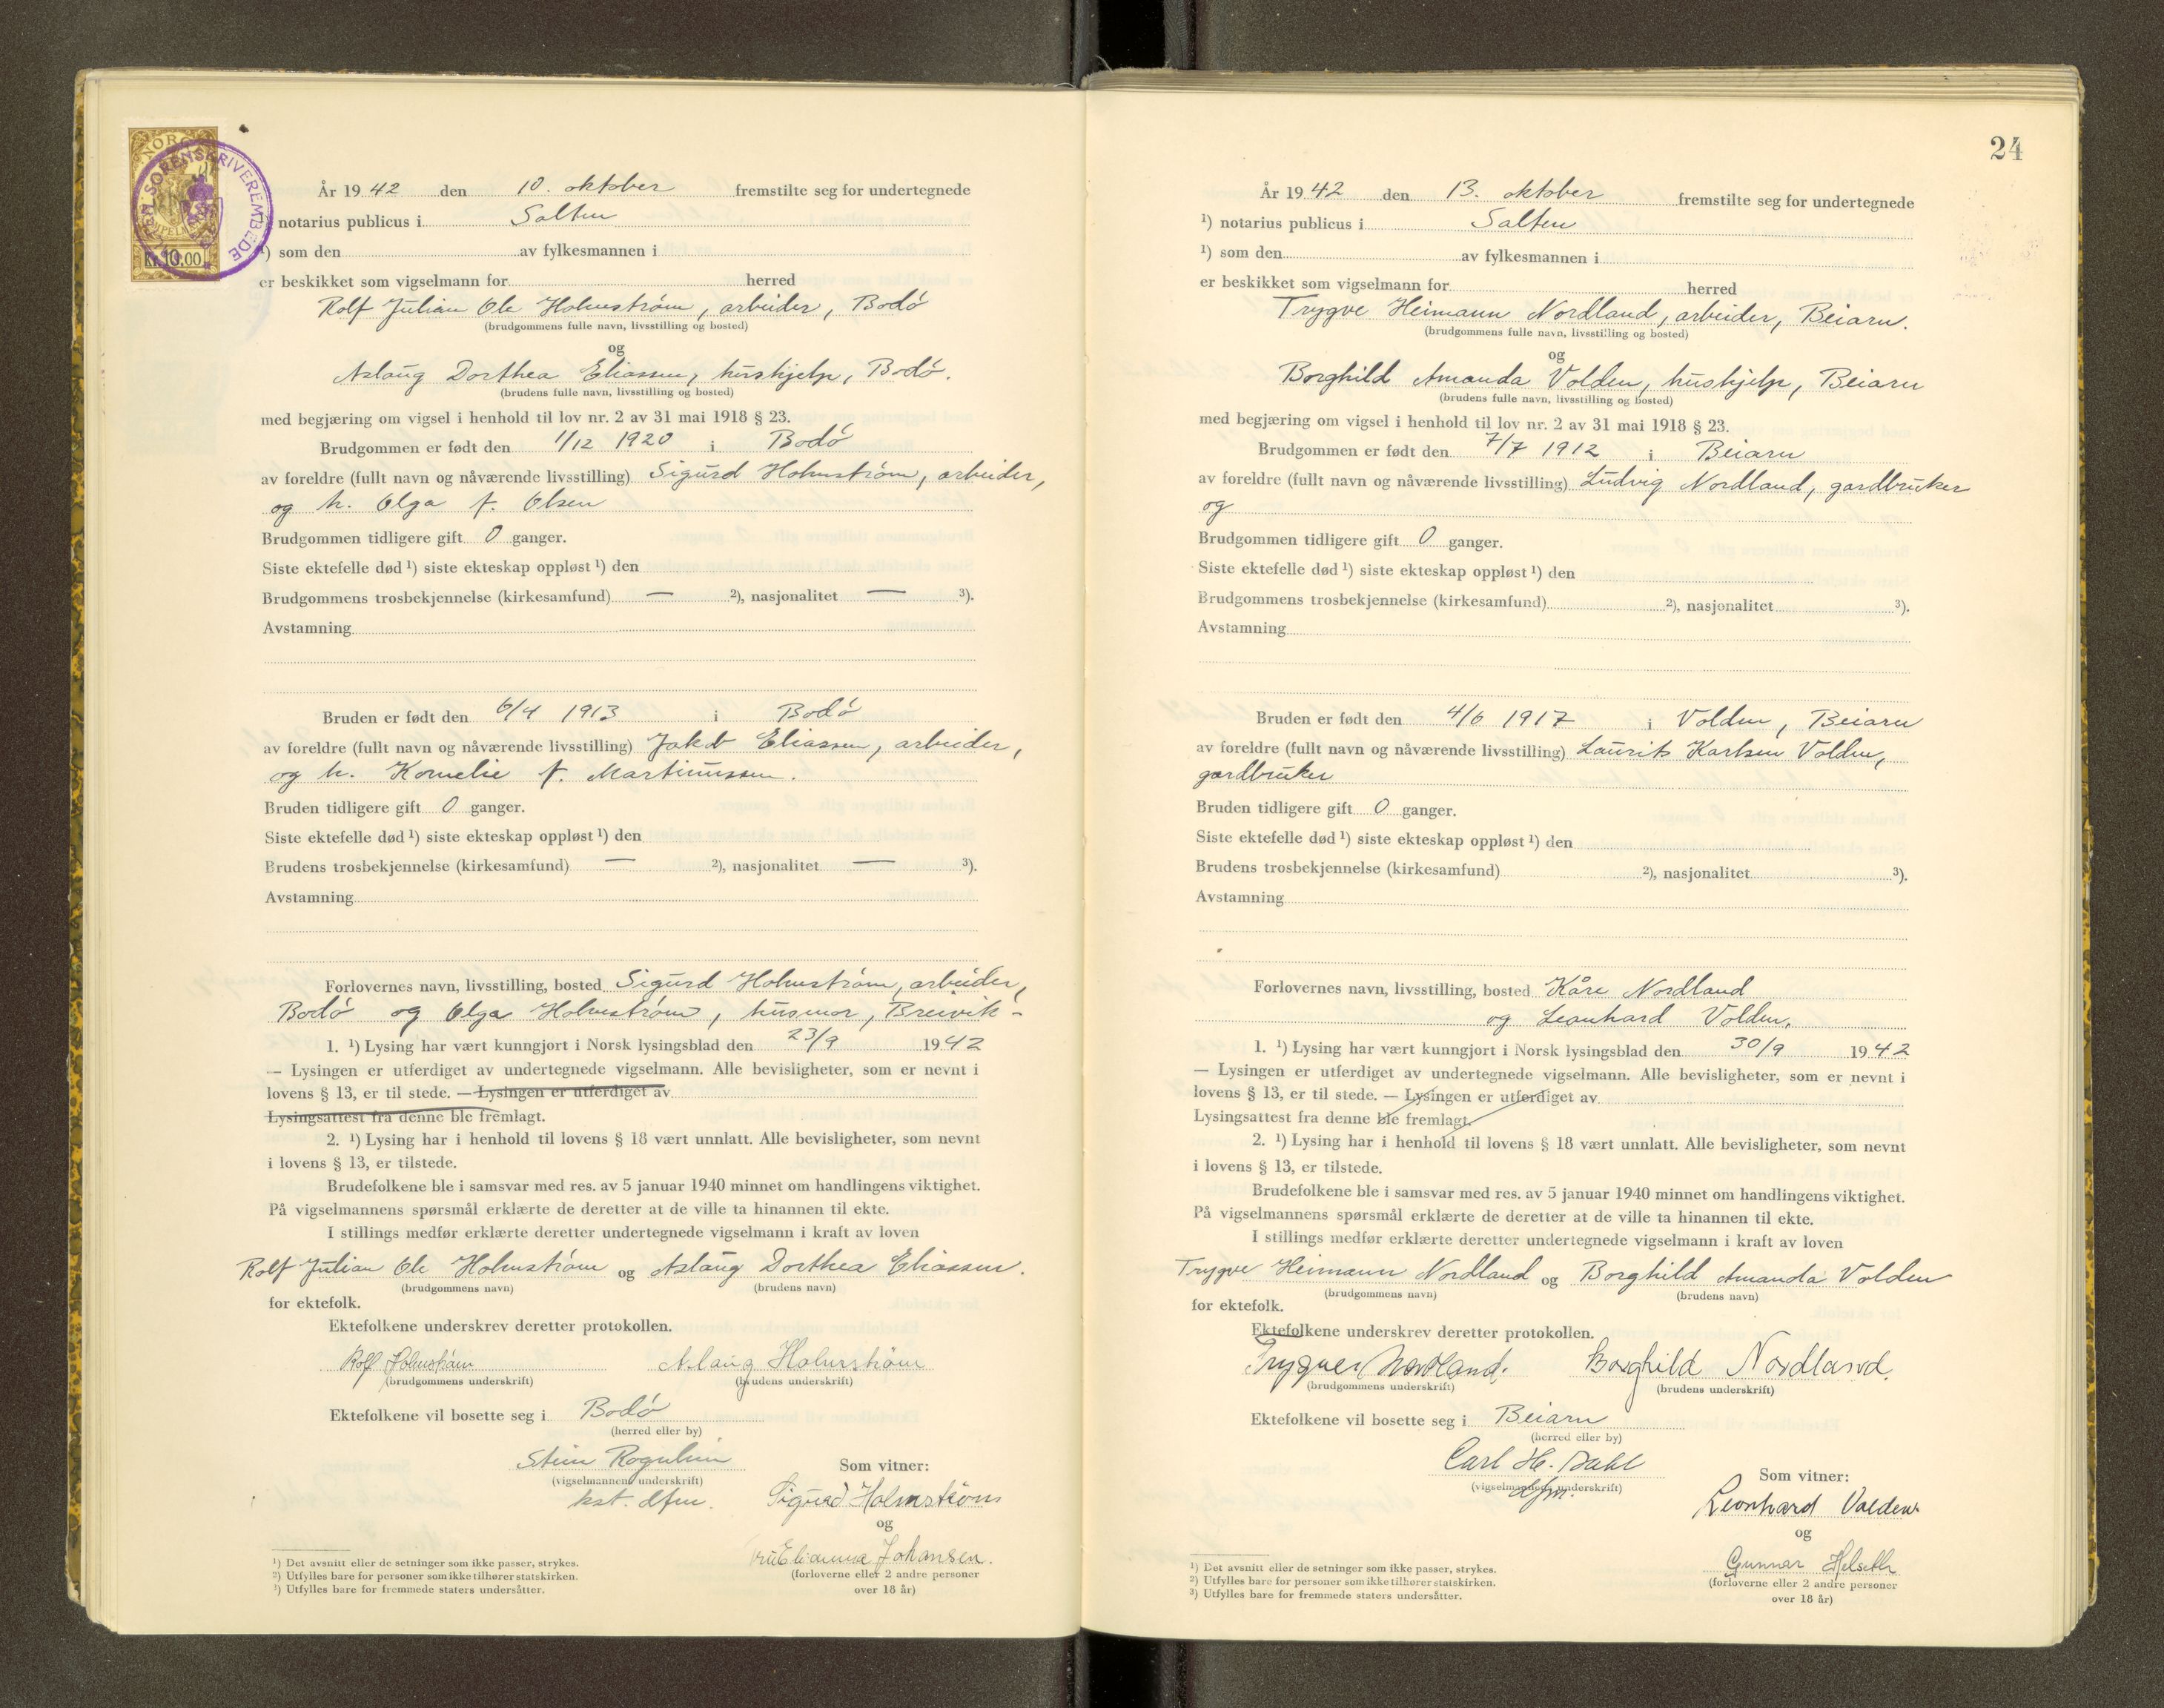 NORGE
SALTEN SORENSKRIVEREMBEDE
Kr. 10.00
År 1942 den 10. oktober fremstilte seg for undertegnede
notarius publicus i Salten
¹) som den av fylkesmannen i
er beskikket som vigselmann for herred
Rolf Julian Ole Holmstrøm, arbeider, Bodø
(brudgommens fulle navn, livsstilling og bosted)
og
Aslaug Dorthea Eliassen, hushjelp, Bodø.
(brudens fulle navn, livsstilling og bosted)
med begjæring om vigsel i henhold til lov nr. 2 av 31 mai 1918 § 23.
Brudgommen er født den 1/12 1920 i Bodø
av foreldre (fullt navn og nåværende livsstilling) Sigurd Holmstrøm, arbeider,
og h. Olga f. Olsen
Brudgommen tidligere gift 0 ganger.
Siste ektefelle død ¹) siste ekteskap oppløst ¹) den
Brudgommens trosbekjennelse (kirkesamfund) — ²), nasjonalitet — ³).
Avstamning
Bruden er født den 6/4 1913 i Bodø
av foreldre (fullt navn og nåværende livsstilling) Jakob Eliassen, arbeider,
og h. Kornelie f. Martinussen.
Bruden tidligere gift 0 ganger.
Siste ektefelle død ¹) siste ekteskap oppløst ¹) den
Brudens trosbekjennelse (kirkesamfund) — ²), nasjonalitet — ³).
Avstamning
Forlovernes navn, livsstilling, bosted Sigurd Holmstrøm, arbeider,
Bodø og Olga Holmstrøm, husmor, Breivik-
1. ¹) Lysing har vært kunngjort i Norsk lysingsblad den 23/9 1942
— Lysingen er utferdiget av undertegnede vigselmann. Alle bevisligheter, som er nevnt i
lovens § 13, er til stede. — Lysingen er utferdiget av
Lysingsattest fra denne ble fremlagt.
2. ¹) Lysing har i henhold til lovens § 18 vært unnlatt. Alle bevisligheter, som nevnt
i lovens § 13, er tilstede.
Brudefolkene ble i samsvar med res. av 5 januar 1940 minnet om handlingens viktighet.
På vigselmannens spørsmål erklærte de deretter at de ville ta hinannen til ekte.
I stillings medfør erklærte deretter undertegnede vigselmann i kraft av loven
Rolf Julian Ole Holmstrøm og Aslaug Dorthea Eliassen.
(brudgommens navn) (brudens navn)
for ektefolk.
Ektefolkene underskrev deretter protokollen.
Rolf Holmstrøm Aslaug Holmstrøm
(brudgommens underskrift) (brudens underskrift)
Ektefolkene vil bosette seg i Bodø
(herred eller by)
Stein Rognlien
(vigselmannens underskrift)
kst. dfm.
Som vitner:
Sigurd Holmstrøm
og
Johansen.
(forloverne eller 2 andre personer
over 18 år)
¹) Det avsnitt eller de setninger som ikke passer, strykes.
²) Utfylles bare for personer som ikke tilhører statskirken.
³) Utfylles bare for fremmede staters undersåtter.
24
År 1942 den 13. oktober fremstilte seg for undertegnede
¹) notarius publicus i Salten
¹) som den av fylkesmannen i
er beskikket som vigselmann for herred
Trygve Heimann Nordland, arbeider, Beiarn.
(brudgommens fulle navn, livsstilling og bosted)
og
Borghild Amanda Volden, hushjelp, Beiarn
(brudens fulle navn, livsstilling og bosted)
med begjæring om vigsel i henhold til lov nr. 2 av 31 mai 1918 § 23.
Brudgommen er født den 7/7 1912 i Beiarn
av foreldre (fullt navn og nåværende livsstilling) Ludvig Nordland, gardbruker
og
Brudgommen tidligere gift 0 ganger.
Siste ektefelle død ¹) siste ekteskap oppløst ¹) den
Brudgommens trosbekjennelse (kirkesamfund) ²), nasjonalitet ³).
Avstamning
Bruden er født den 4/6 1917 i Volden, Beiarn
av foreldre (fullt navn og nåværende livsstilling) Laurits Karlsen Volden,
gardbruker
Bruden tidligere gift 0 ganger.
Siste ektefelle død ¹) siste ekteskap oppløst ¹) den
Brudens trosbekjennelse (kirkesamfund) ²), nasjonalitet ³).
Avstamning
Forlovernes navn, livsstilling, bosted Kåre Nordland
og Leonhard Volden.
1. ¹) Lysing har vært kunngjort i Norsk lysingsblad den 30/9 1942
— Lysingen er utferdiget av undertegnede vigselmann. Alle bevisligheter, som er nevnt i
lovens § 13, er til stede. — Lysingen er utferdiget av
Lysingsattest fra denne ble fremlagt.
2. ¹) Lysing har i henhold til lovens § 18 vært unnlatt. Alle bevisligheter, som nevnt
i lovens § 13, er tilstede.
Brudefolkene ble i samsvar med res. av 5 januar 1940 minnet om handlingens viktighet.
På vigselmannens spørsmål erklærte de deretter at de ville ta hinannen til ekte.
I stillings medfør erklærte deretter undertegnede vigselmann i kraft av loven
Trygve Heimann Nordland og Borghild Amanda Volden
(brudgommens navn) (brudens navn)
for ektefolk.
Ektefolkene underskrev deretter protokollen.
Trygve Nordland. Borghild Nordland.
(brudgommens underskrift) (brudens underskrift)
Ektefolkene vil bosette seg i Beiarn
(herred eller by)
Carl H. Dahl
(vigselmannens underskrift)
dfm.
Som vitner:
Leonhard Volden
og
Gunnar Helseth
(forloverne eller 2 andre personer
over 18 år)
¹) Det avsnitt eller de setninger som ikke passer, strykes.
²) Utfylles bare for personer som ikke tilhører statskirken.
³) Utfylles bare for fremmede staters undersåtter.